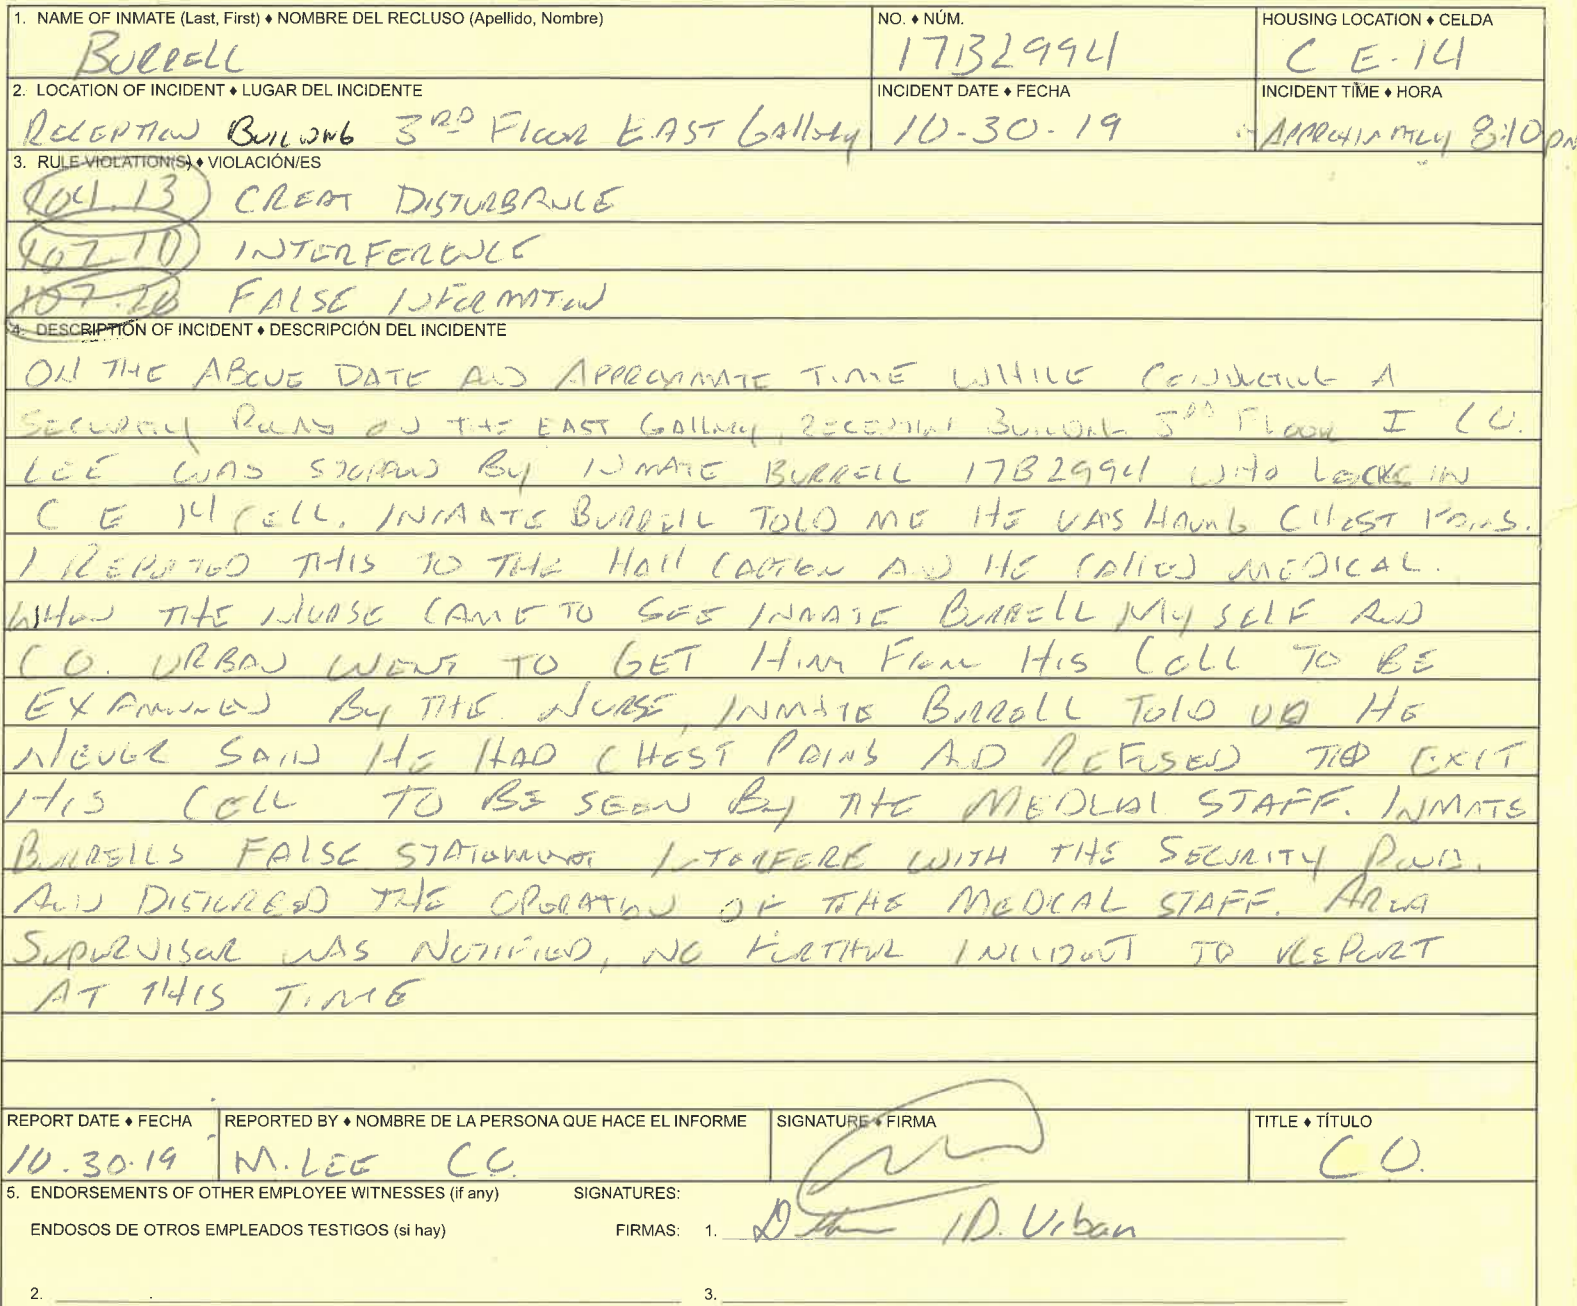 1. NAME OF INMATE (Last, First) ♦ NOMBRE DEL RECLUSO (Apellido, Nombre) NO. ♦ NÚM. HOUSING LOCATION ♦ CELDA
BURRELL 17B2994 C E-14
2. LOCATION OF INCIDENT ♦ LUGAR DEL INCIDENTE INCIDENT DATE ♦ FECHA INCIDENT TIME ♦ HORA
RECEPTION BUILDING 3RD FLOOR EAST GALLERY 10-30-19 APPROXIMATLY 8:10 PM
3. RULE VIOLATION(S) ♦ VIOLACIÓN/ES
104.13 CREAT DISTURBANCE
107.10 INTERFERENCE
107.20 FALSE INFORMATION
4. DESCRIPTION OF INCIDENT ♦ DESCRIPCIÓN DEL INCIDENTE
ON THE ABOVE DATE AND APPROXIMATE TIME WHILE CONDUCTING A
SECURITY ROUND ON THE EAST GALLERY, RECEPTION BUILDING 3RD FLOOR I CO.
LEE WAS STOPPED BY INMATE BURRELL 17B2994 WHO LOCKS IN
C E 14 CELL. INMATE BURRELL TOLD ME HE WAS HAVING CHEST PAINS.
I REPORTED THIS TO THE HALL CAPTAIN AND HE CALLED MEDICAL.
WHEN THE NURSE CAME TO SEE INMATE BURRELL MY SELF AND
CO. URBAN WENT TO GET HIM FROM HIS CELL TO BE
EXAMINED BY THE NURSE, INMATE BURRELL TOLD US HE
NEVER SAID HE HAD CHEST PAINS AND REFUSED TO EXIT
HIS CELL TO BE SEEN BY THE MEDICAL STAFF. INMATE
BURRELLS FALSE STATEMENT INTERFERE WITH THE SECURITY ROUND.
AND DISTURBED THE OPERATION OF THE MEDICAL STAFF. AREA
SUPERVISOR WAS NOTIFIED, NO FURTHER INCIDENT TO REPORT
AT THIS TIME
REPORT DATE ♦ FECHA REPORTED BY ♦ NOMBRE DE LA PERSONA QUE HACE EL INFORME SIGNATURE ♦ FIRMA TITLE ♦ TÍTULO
10.30.19 M. LEE CO. CO.
5. ENDORSEMENTS OF OTHER EMPLOYEE WITNESSES (if any) SIGNATURES:
ENDOSOS DE OTROS EMPLEADOS TESTIGOS (si hay) FIRMAS: 1. D. Urban
2. 3.